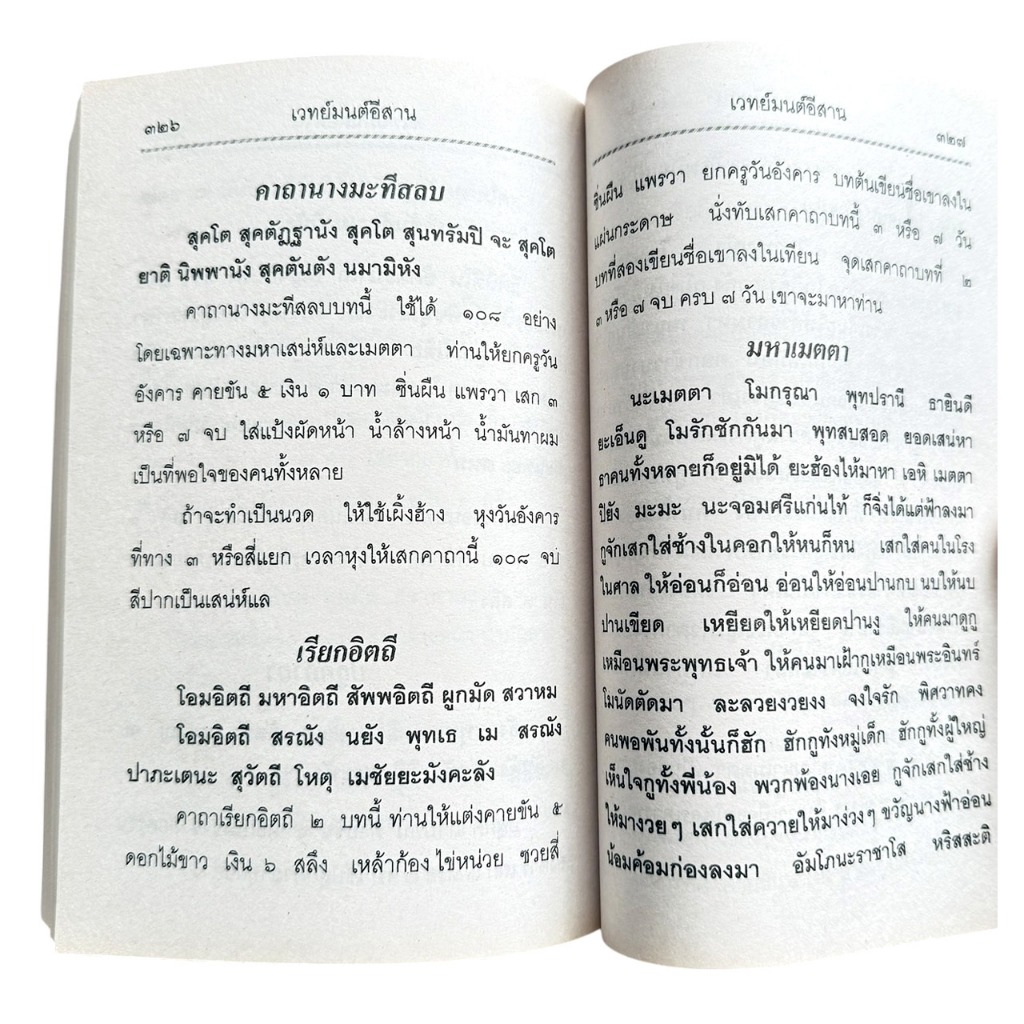 ๓๒๖
เวทย์มนต์อีสาน
คาถานางมะทีสลบ
สุคโต สุคตัฏฐานัง สุคโต สุนทรัมปิ จะ สุคโต
ยาติ นิพพานัง สุคตันตัง นมามิหัง
คาถานางมะทีสลบบทนี้ ใช้ได้ ๑๐๘ อย่าง
โดยเฉพาะทางมหาเสน่ห์และเมตตา ท่านให้ยกครูวัน
อังคาร คายขัน ๕ เงิน ๑ บาท ซิ่นผืน แพรวา เสก ๓
หรือ ๗ จบ ใส่แป้งผัดหน้า น้ำล้างหน้า น้ำมันทาผม
เป็นที่พอใจของคนทั้งหลาย
ถ้าจะทำเป็นนวด ให้ใช้เผิ้งฮ้าง หุงวันอังคาร
ที่ทาง ๓ หรือสี่แยก เวลาหุงให้เสกคาถานี้ ๑๐๘ จบ
สีปากเป็นเสน่ห์แล
เรียกอิตถี
โอมอิตถี มหาอิตถี สัพพอิตถี ผูกมัด สวาหม
โอมอิตถี สรณัง นยัง พุทเธ เม สรณัง
ปาภะเตนะ สุวัตถี โหตุ เมชัยยะมังคะลัง
คาถาเรียกอิตถี ๒ บทนี้ ท่านให้แต่งคายขัน ๕
ดอกไม้ขาว เงิน ๖ สลึง เหล้าก้อง ไข่หน่วย ซวยสี่
เวทย์มนต์อีสาน
๓๒๗
ซิ่นผืน แพรวา ยกครูวันอังคาร บทต้นเขียนชื่อเขาลงใน
แผ่นกระดาษ นั่งทับเสกคาถาบทนี้ ๓ หรือ ๗ วัน
บทที่สองเขียนชื่อเขาลงในเทียน จุดเสกคาถาบทที่ ๒
๓ หรือ ๗ จบ ครบ ๗ วัน เขาจะมาหาท่าน
มหาเมตตา
นะเมตตา โมกรุณา พุทปรานี ธายินดี
ยะเอ็นดู โมรักชักกันมา พุทสบสอด ยอดเสน่หา
ธาคนทั้งหลายก็อยู่มิได้ ยะฮ้องไห้มาหา เอหิ เมตตา
ปิยัง มะมะ นะจอมศรีแก่นไท้ ก็จิ่งได้แต่ฟ้าลงมา
กูจักเสกใส่ช้างในคอกให้หนก็หน เสกใส่คนในโรง
ในศาล ให้อ่อนก็อ่อน อ่อนให้อ่อนปานกบ นบให้นบ
ปานเขียด เหยียดให้เหยียดปานงู ให้คนมาดูกู
เหมือนพระพุทธเจ้า ให้คนมาเฝ้ากูเหมือนพระอินทร์
โมนัดตัดมา ละลวยงวยงง จงใจรัก พิศวาทคง
คนพอพันทั้งนั้นก็ฮัก ฮักกูทังหมู่เด็ก ฮักกูทั้งผู้ใหญ่
เห็นใจกูทั้งพี่น้อง พวกพ้องนางเอย กูจักเสกใส่ช้าง
ให้มางวยๆ เสกใส่ควายให้มาง่วงๆ ขวัญนางฟ้าอ่อน
น้อมค้อมก่องลงมา อัมโภนะราชาโส หริสสะติ